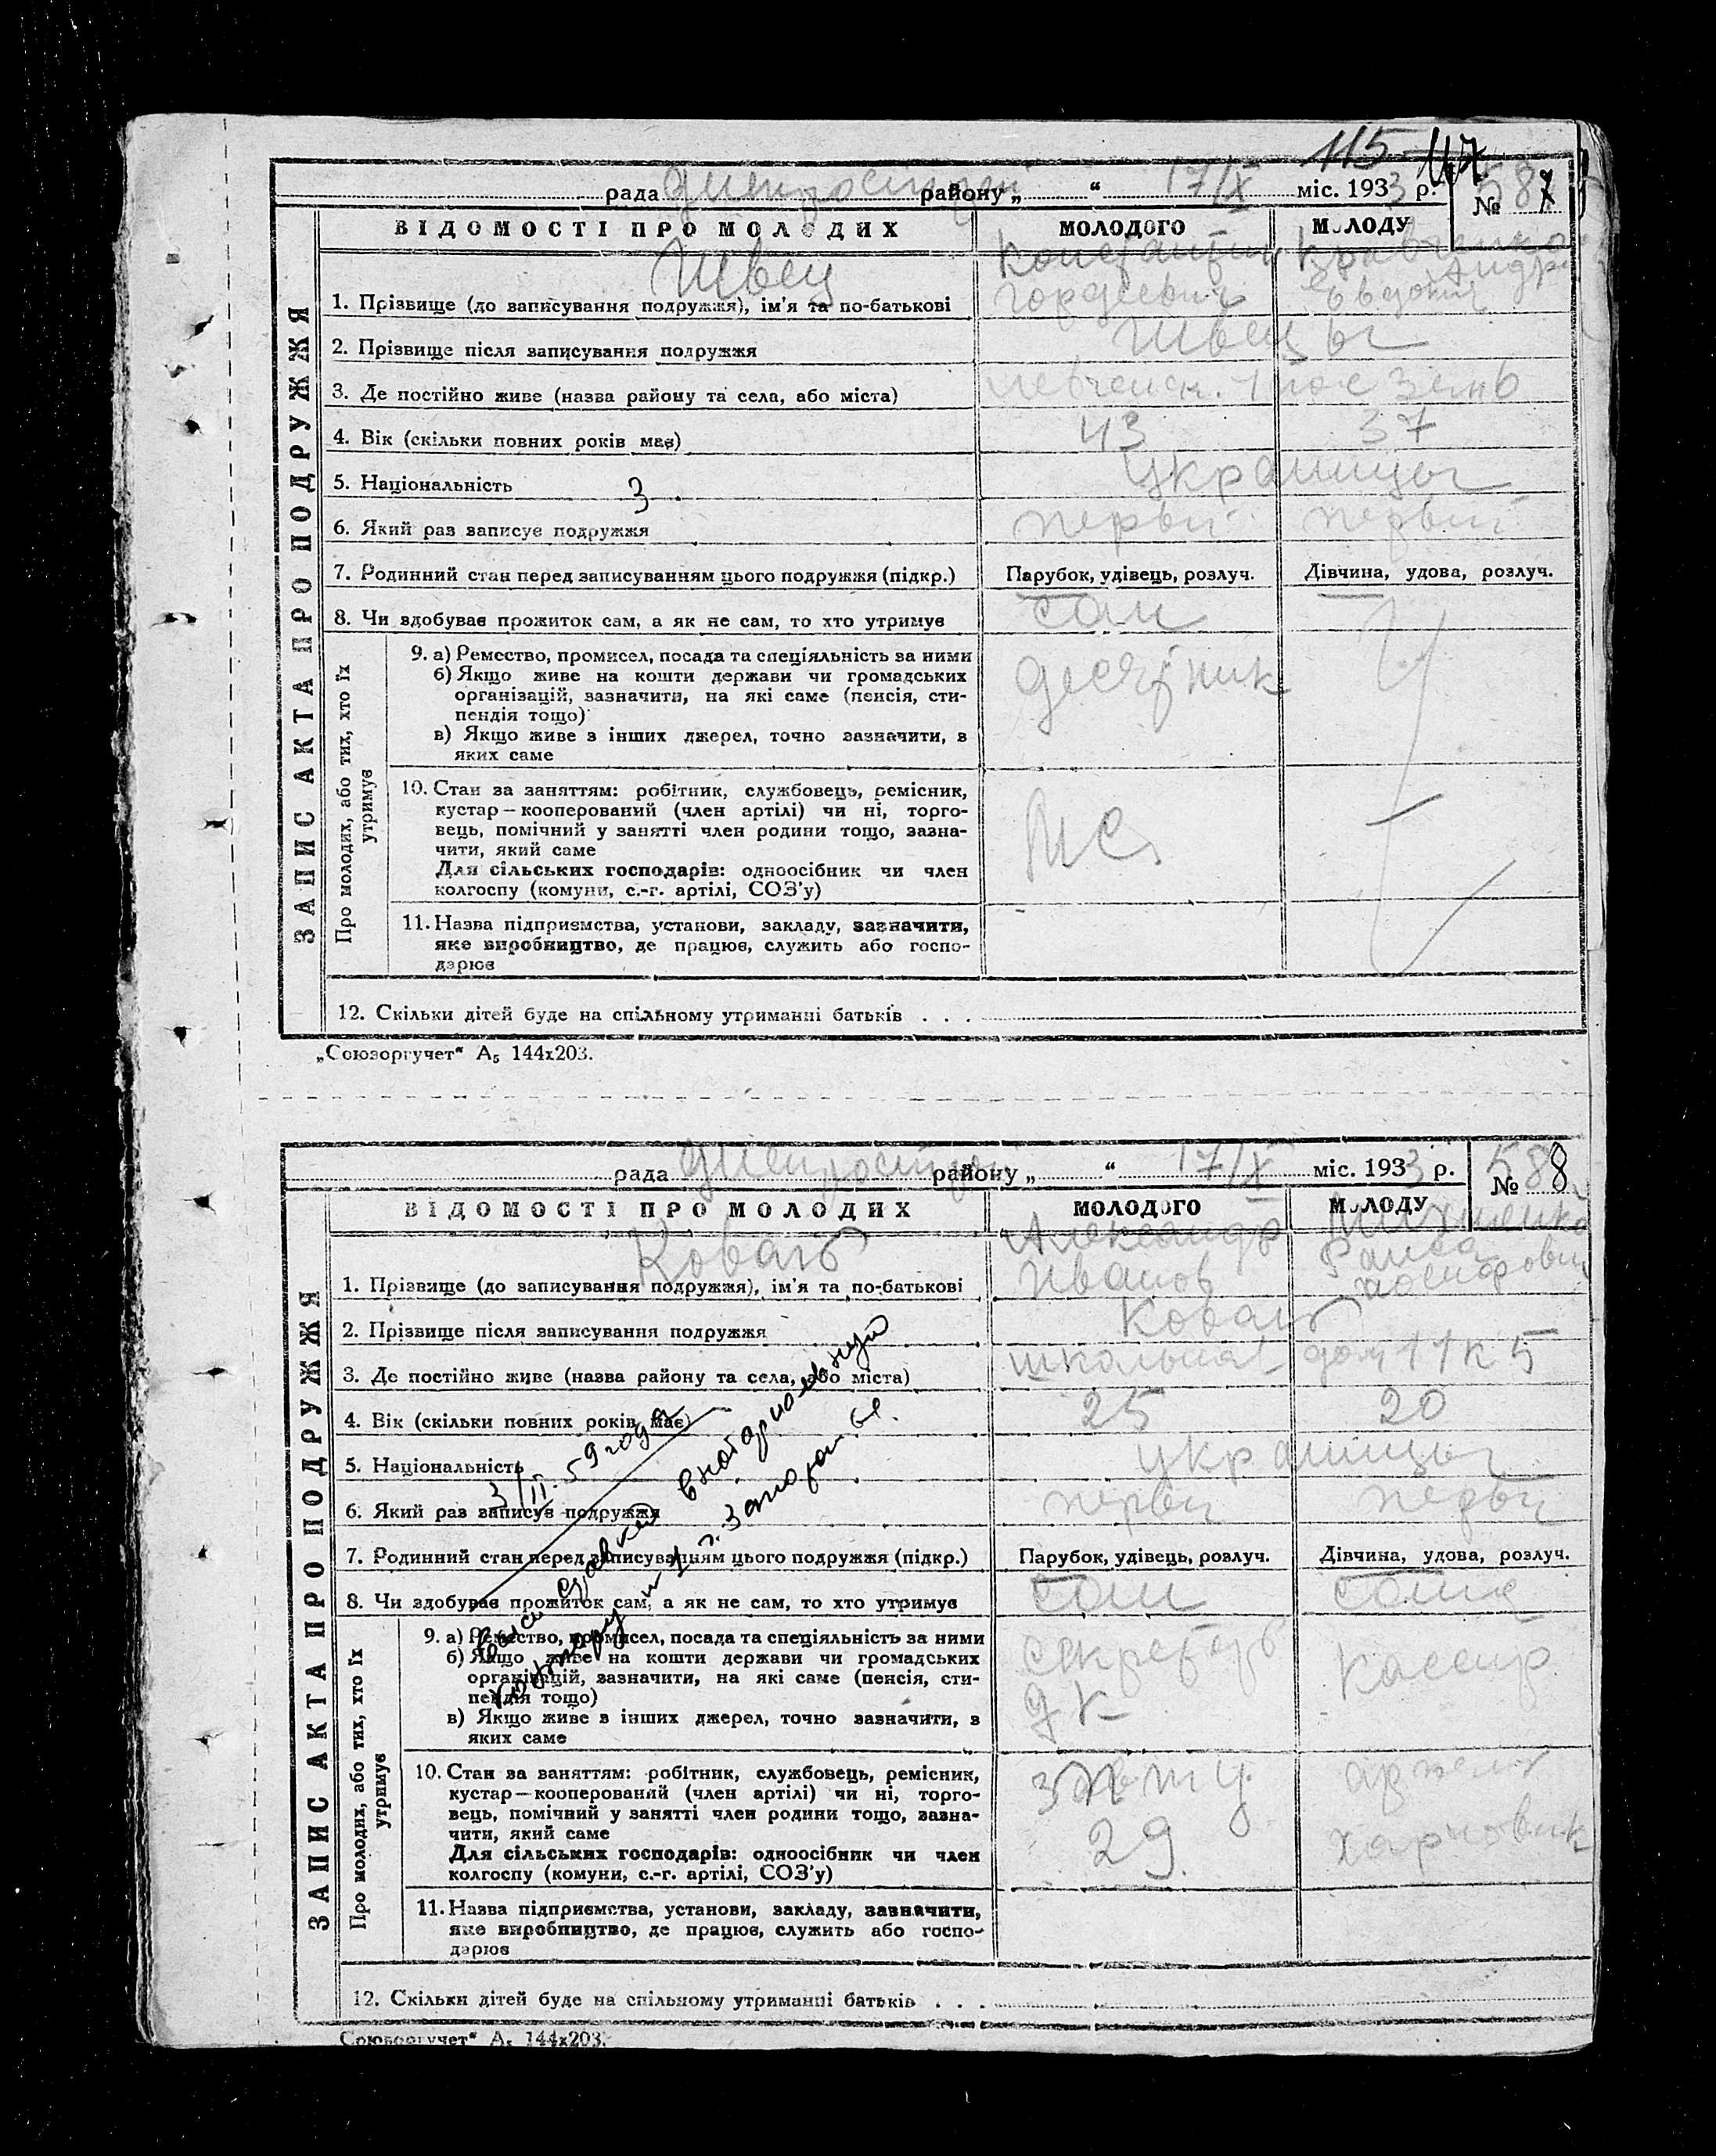 115
117
рада Днепрострой району „ “ 17/IX міс. 1933 р. № 587
ВІДОМОСТІ ПРО МОЛОДИХ МОЛОДОГО МОЛОДУ
ЗАПИС АКТА ПРО ПОДРУЖЖЯ
Швец Константин Кравченко
1. Прізвище (до записування подружжя), ім'я та по-батькові Гордеевич Евдокия Андр
2. Прізвище після записування подружжя Швецы
3. Де постійно живе (назва району та села, або міста)
4. Вік (скільки повних років має) 43 37
5. Національність украинцы
3
6. Який раз записує подружжя первый первый
7. Родинний стан перед записуванням цього подружжя (підкр.) Парубок, удівець, розлуч. Дівчина, удова, розлуч.
8. Чи здобуває прожиток сам, а як не сам, то хто утримує сам
Про молодих, або тих, хто їх утримує
9. а) Ремество, промисел, посада та спеціяльність за ними десятник
б) Якщо живе на кошти держави чи громадських
організацій, зазначити, на які саме (пенсія, сти-
пендія тощо)
в) Якщо живе з інших джерел, точно зазначити, в
яких саме
10. Стан за заняттям: робітник, службовець, ремісник,
кустар—кооперований (член артілі) чи ні, торго-
вець, помічний у занятті член родини тощо, зазна-
чити, який саме
Для сільських господарів: одноосібник чи член
колгоспу (комуни, с.-г. артілі, СОЗ'у)
11. Назва підприємства, установи, закладу, зазначити,
яке виробництво, де працює, служить або госпо-
дарює
12. Скільки дітей буде на спільному утриманні батьків . . .
„Союзоргучет“ А₅ 144х203.
рада Днепрострой району „ “ 17/IX міс. 1933 р. № 588
ВІДОМОСТІ ПРО МОЛОДИХ МОЛОДОГО МОЛОДУ
ЗАПИС АКТА ПРО ПОДРУЖЖЯ
Коваль Александр
1. Прізвище (до записування подружжя), ім'я та по-батькові Иванов Раиса
2. Прізвище після записування подружжя Коваль
3. Де постійно живе (назва району та села, або міста) школьная дом 11 к 5
4. Вік (скільки повних років має) 25 20
5. Національність украинцы
3/II-59 года
6. Який раз записує подружжя первый первый
7. Родинний стан перед записуванням цього подружжя (підкр.) Парубок, удівець, розлуч. Дівчина, удова, розлуч.
8. Чи здобуває прожиток сам, а як не сам, то хто утримує сам сама
нотариальную
контору № 1 г. Запорожье.
Про молодих, або тих, хто їх утримує
9. а) Ремество, промисел, посада та спеціяльність за ними секретарь кассир
б) Якщо живе на кошти держави чи громадських
організацій, зазначити, на які саме (пенсія, сти-
пендія тощо)
в) Якщо живе з інших джерел, точно зазначити, в
яких саме
10. Стан за заняттям: робітник, службовець, ремісник, артель
кустар—кооперований (член артілі) чи ні, торго-
вець, помічний у занятті член родини тощо, зазна- 29 харчовик
чити, який саме
Для сільських господарів: одноосібник чи член
колгоспу (комуни, с.-г. артілі, СОЗ'у)
11. Назва підприємства, установи, закладу, зазначити,
яке виробництво, де працює, служить або госпо-
дарює
12. Скільки дітей буде на спільному утриманні батьків . . .
Союзоргучет“ А₅ 144х203.